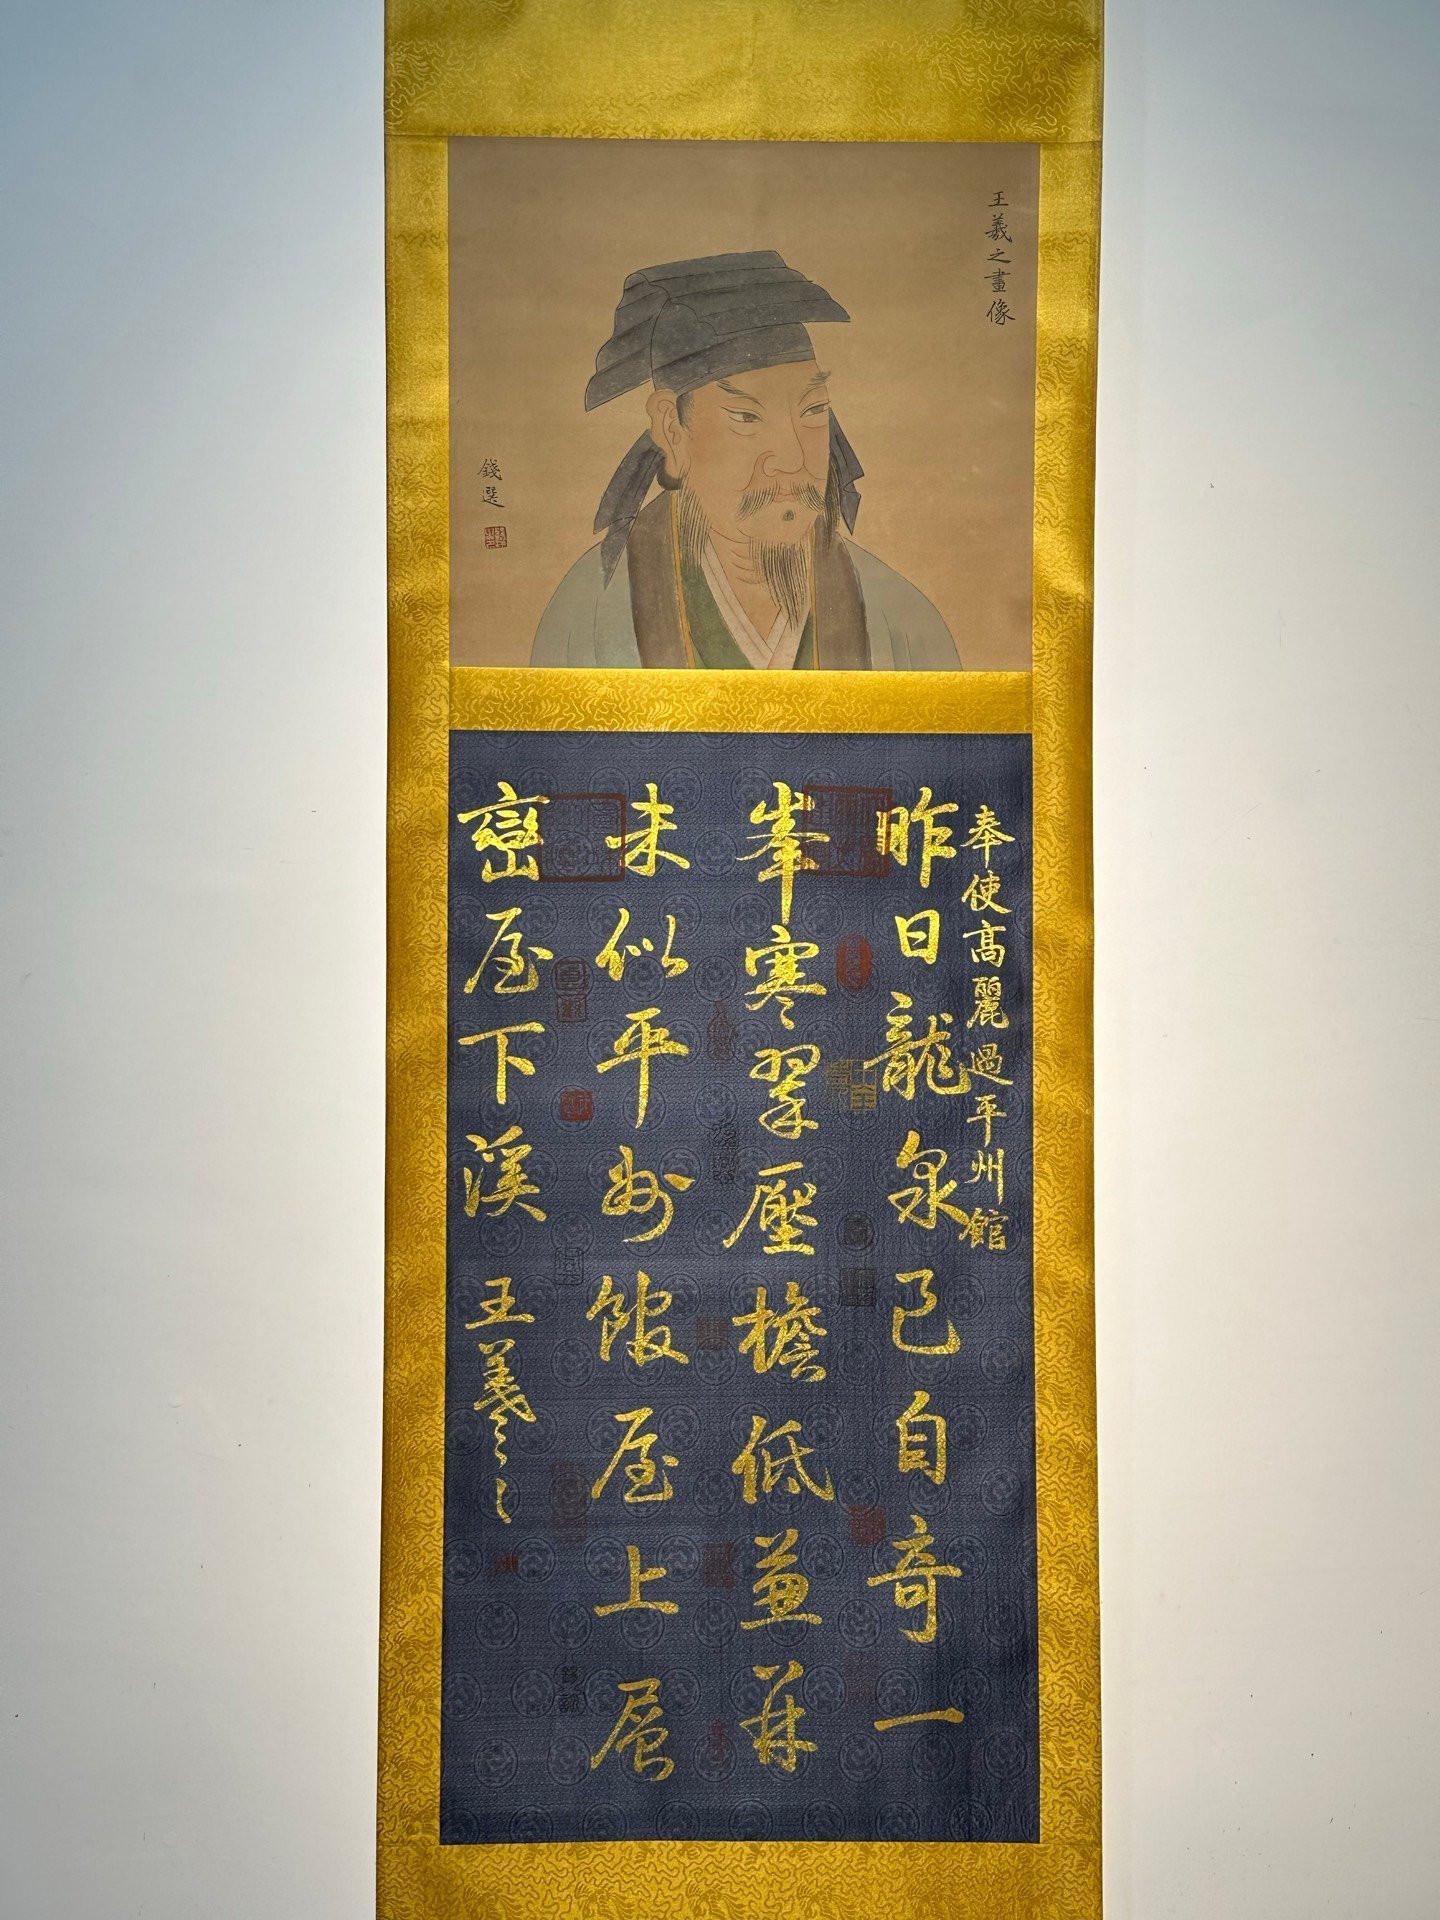 王羲之畫像
錢選
奉使高麗過平州館
昨日龍泉已自奇一
峯寒翠壓檐低兼葬
未似平州館屋上層
巒屋下溪
王羲之